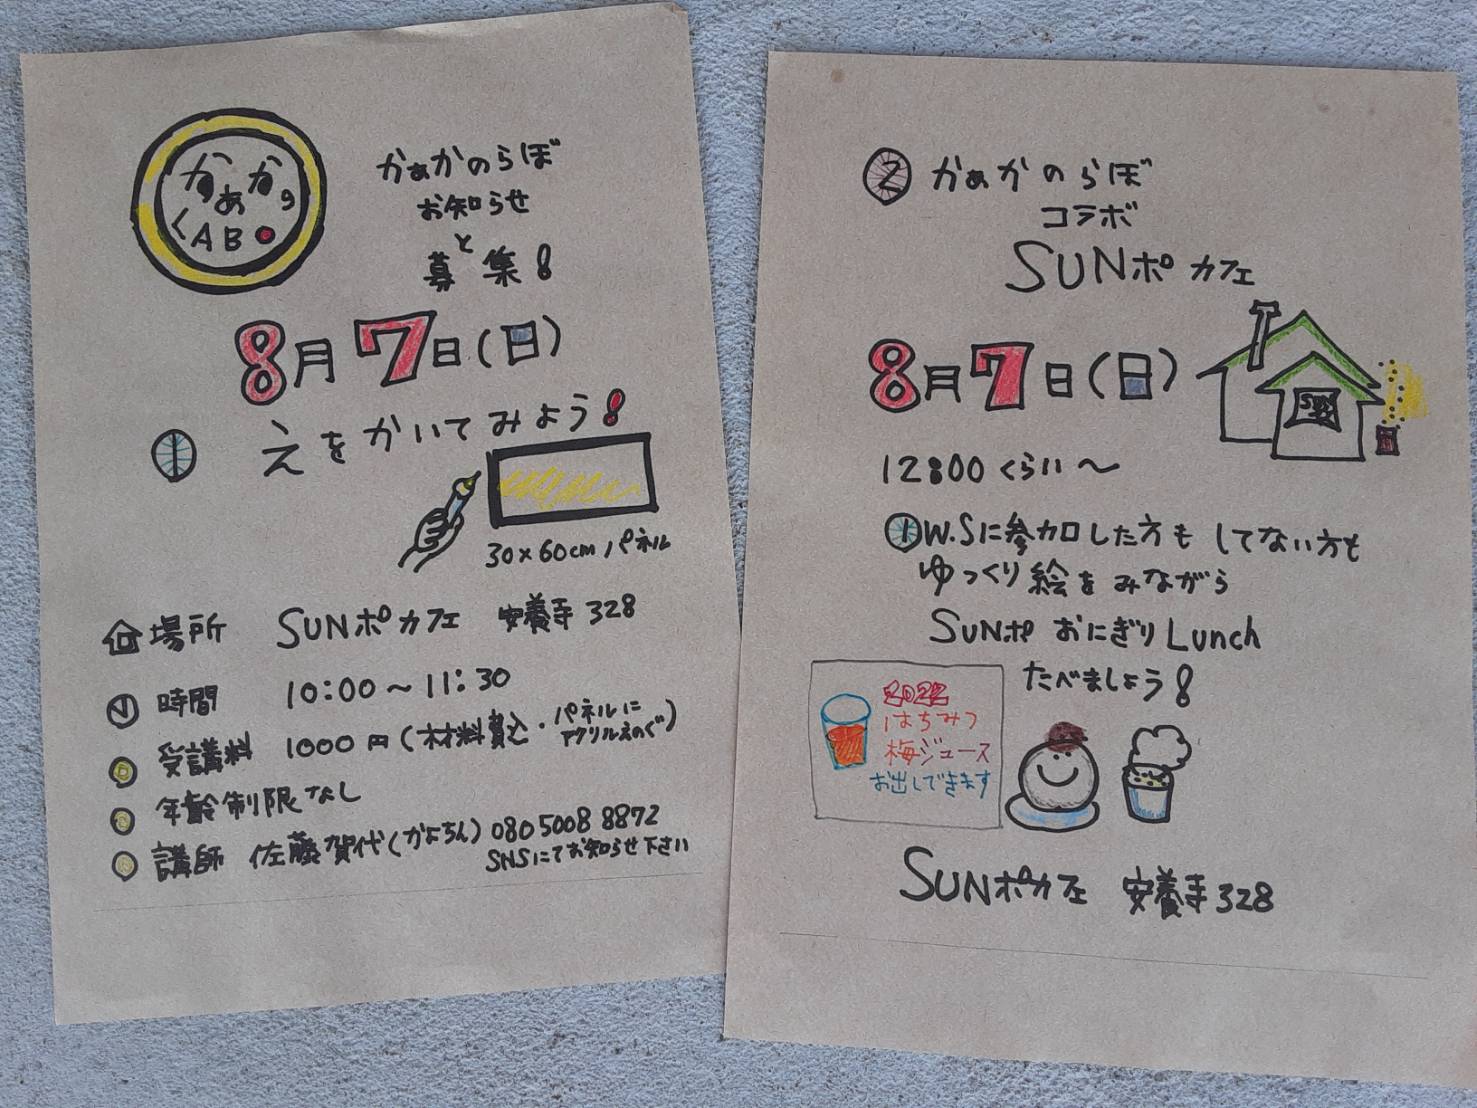 かぁかの
LABO
かぁかのらぼ
お知らせ
と
募集!
8月7日(日)
① えをかいてみよう!
30×60cmパネル
場所 SUNポカフェ 安養寺328
時間 10:00~11:30
受講料 1000円(材料費込・パネルに
アクリルえのぐ)
年齢制限なし
講師 佐藤賀代(かよちん) 080 5008 8872
SNSにてお知らせ下さい
② かぁかのらぼ
コラボ
SUNポカフェ
8月7日(日)
SUN
12:00くらい~
①W.Sに参加した方もしてない方も
ゆっくり絵をみながら
SUNポ おにぎりLunch
たべましょう!
2022
はちみつ
梅ジュース
お出しできます
SUNポカフェ 安養寺328